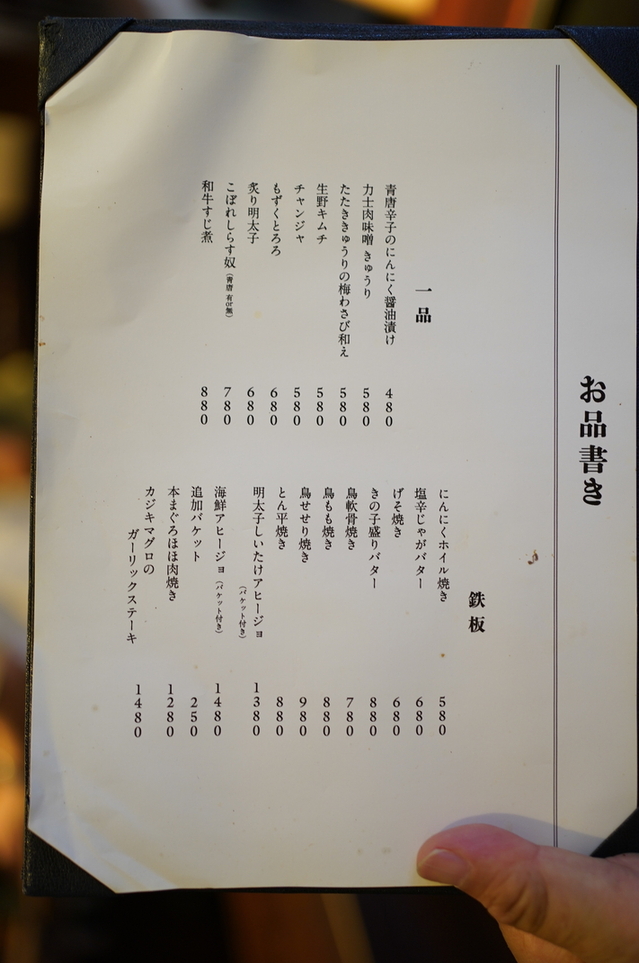 お品書き
一品
青唐辛子のにんにく醤油漬け 480
力士肉味噌 きゅうり 580
たたききゅうりの梅わさび和え 580
生野キムチ 580
チャンジャ 580
もずくとろろ 680
炙り明太子 680
こぼれしらす奴（青唐 有or無） 780
和牛すじ煮 880
鉄板
にんにくホイル焼き 580
塩辛じゃがバター 680
げそ焼き 680
きの子盛りバター 880
鳥軟骨焼き 780
鳥もも焼き 880
鳥せせり焼き 980
とん平焼き 880
明太子しいたけアヒージョ 1380
（バケット付き）
海鮮アヒージョ（バケット付き） 1480
追加バケット 250
本まぐろほほ肉焼き 1280
カジキマグロの
ガーリックステーキ 1480